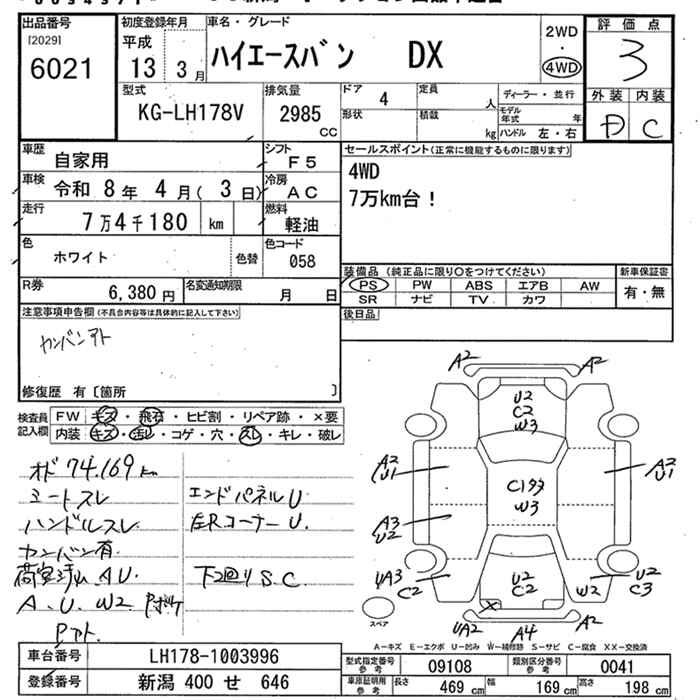 出品番号
[2029]
6021
初度登録年月
平成
13 3月
車名・グレード
ハイエースバン DX
2WD
・
4WD
評価点
3
外装 内装
D C
型式
KG-LH178V
排気量
2985
CC
ドア
4
定員
人
ディーラー・並行
モデル年式 年
形状
積載
kg
ハンドル 左・右
車歴
自家用
シフト
F5
車検
令和 8年 4月( 3日)
冷房
AC
走行
7万4千180 km
燃料
軽油
色
ホワイト
色替
色コード
058
R券
6,380円
名変通知期限
月 日
セールスポイント(正常に機能するものに限ります)
4WD
7万km台!
装備品(純正品に限り○をつけてください)
PS PW ABS エアB AW
SR ナビ TV カワ
新車保証書
有・無
後日品
注意事項申告欄(不具合内容等は具体的に記入して下さい)
カンバンアト
修復歴 有〔箇所 〕
検査員
記入欄
FW キズ・飛石・ヒビ割・リペア跡・×要
内装 キズ・汚レ・コゲ・穴・スレ・キレ・破レ
オド 74.169km
シートスレ
ハンドルスレ
カンバン有
A.U. W2
Pアト.
エンドパネルU
左RコーナーU.
下回りS.C
A2 A2
U2
C2
W3
A2
U1
A2
U1
W3
A3
U2
UA3
C2
U2
C2
W2
U2
C3
UA2 A4 U2
スペア
A-キズ E-エクボ U-凹み W-補修跡 S-サビ C-腐食 XX-交換済
車台番号
LH178-1003996
登録番号
新潟 400 せ 646
型式指定番号
参考
09108
類別区分番号
参考
0041
車庫証明用
参考
長さ 469 cm 幅 169 cm 高さ 198 cm